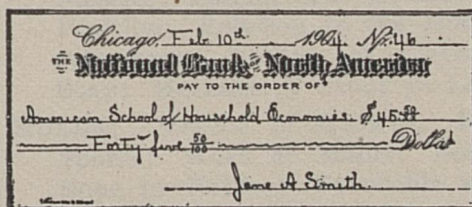 Chicago, Feb 10th 1904 No. 46
THE National Bank of North America
PAY TO THE ORDER OF
American School of Household Economics $45.50
Forty five 50/100 Dollars
Jane A Smith